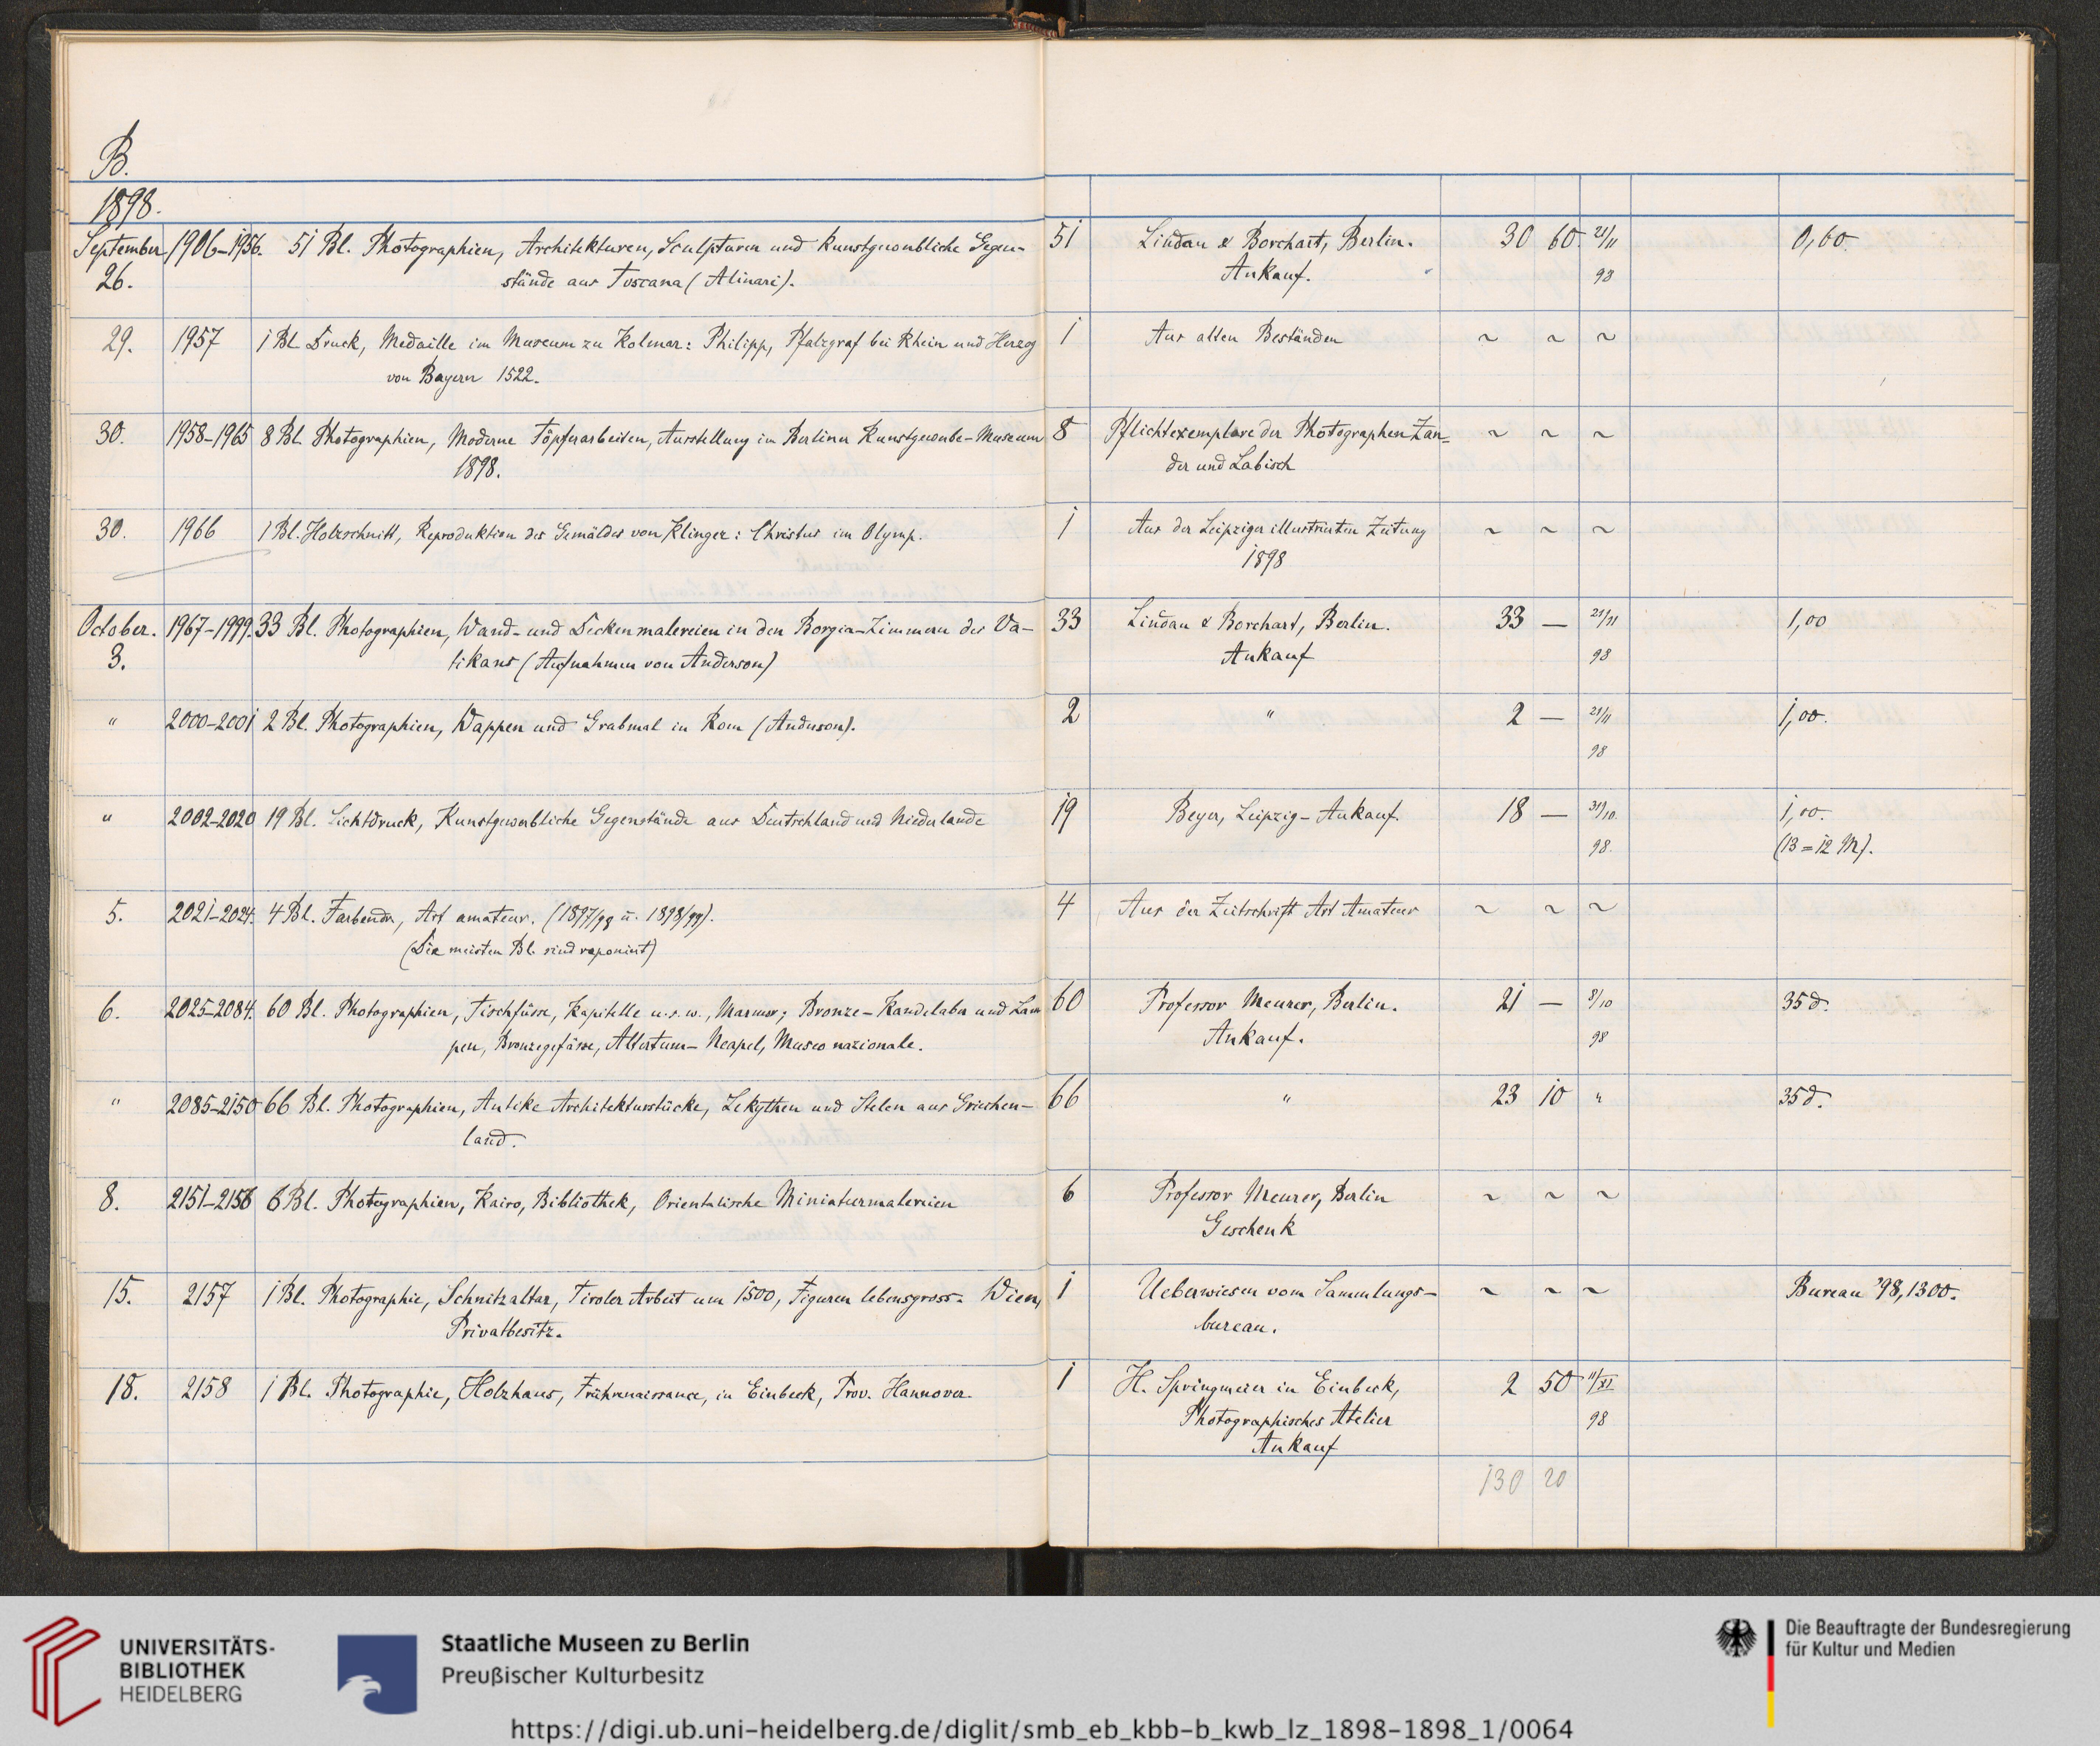 B.
1898.
September 1906-1956. 51 Bl. Photographien, Architekturen, Sculpturen und kunstgewerbliche Gegen- 51 Lindau & Borchart, Berlin. 30 60. 21/11 0,60.
26. stände aus Toscana (Alinari). Ankauf. 98
29. 1957 1 Bl. Druck, Medaille im Museum zu Kolmar: Philipp, Pfalzgraf bei Rhein und Herzog 1 Aus alten Beständen ~ ~ ~
von Bayern 1522.
30. 1958-1965 8 Bl. Photographien, Moderne Töpferarbeiten, Ausstellung im Berliner Kunstgewerbe-Museum 8 Pflichtexemplare der Photographen Zan- ~ ~ ~
1898. der und Labisch
30. 1966 1 Bl. Holzschnitt, Reproduktion des Gemäldes von Klinger: Christus im Olymp. 1 Aus der Leipziger illustrierten Zeitung ~ ~ ~
1898
October. 1967-1999. 33 Bl. Photographien, Wand- und Deckenmalereien in den Borgia-Zimmern des Va- 33 Lindau & Borchart, Berlin. 33 — 21/11 1,00
3. tikans (Aufnahmen von Anderson) Ankauf 98
" 2000-2001 2 Bl. Photographien, Wappen und Grabmal in Rom (Anderson). 2 " 2 — 21/11 1,00.
98
" 2002-2020 19 Bl. Lichtdruck, Kunstgewerbliche Gegenstände aus Deutschland und Niederlande 19 Beyer, Leipzig - Ankauf. 18 — 31/10. 1,00.
98. (13 = 12 M).
5. 2021-2024. 4 Bl. Farbendr., Art amateur. (1897/98 u. 1898/99). 4 Aus der Zeitschrift Art Amateur ~ ~ ~
(Die meisten Bl. sind reponiert)
6. 2025-2084. 60 Bl. Photographien, Tischfüsse, Kapitelle u.s.w., Marmor; Bronze-Kandelaber und Lam 60 Professor Meurer, Berlin. 21 — 8/10 35 d.
pen, Bronzegefässe, Altertum - Neapel, Museo nazionale. Ankauf. 98
" 2085-2150 66 Bl. Photographien, Antike Architekturstücke, Lekythen und Stelen aus Griechen- 66 " 23 10 " 35 d.
land.
8. 2151-2156 6 Bl. Photographien, Kairo, Bibliothek, Orientalische Miniaturmalereien 6 Professor Meurer, Berlin ~ ~ ~
Geschenk
15. 2157 1 Bl. Photographie, Schnitzaltar, Tiroler Arbeit um 1500, Figuren lebensgross. Wien, 1 Ueberwiesen vom Sammlungs- ~ ~ ~ Bureau '98, 1300.
Privatbesitz. bureau.
18. 2158 1 Bl. Photographie, Holzhaus, Frührenaissance, in Einbeck, Prov. Hannover. 1 H. Springmeier in Einbeck, 2 50 11/XI.
Photographisches Atelier 98
Ankauf
130 20
UNIVERSITÄTS-
BIBLIOTHEK
HEIDELBERG
Staatliche Museen zu Berlin
Preußischer Kulturbesitz
Die Beauftragte der Bundesregierung
für Kultur und Medien
https://digi.ub.uni-heidelberg.de/diglit/smb_eb_kbb-b_kwb_lz_1898-1898_1/0064